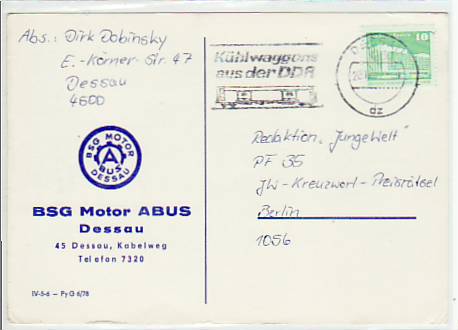 Abs.: Dirk Dobinsky
E.-Körner-Str. 47
Dessau
4500
Kühlwaggons
aus der DDR
10
az
BSG MOTOR
A
BUS
DESSAU
BSG Motor ABUS
Dessau
45 Dessau, Kabelweg
Telefon 7320
IV-5-6 – Py G 6/78
Redaktion „Junge Welt"
PF 35
JW-Kreuzwort-Preisrätsel
Berlin
1056